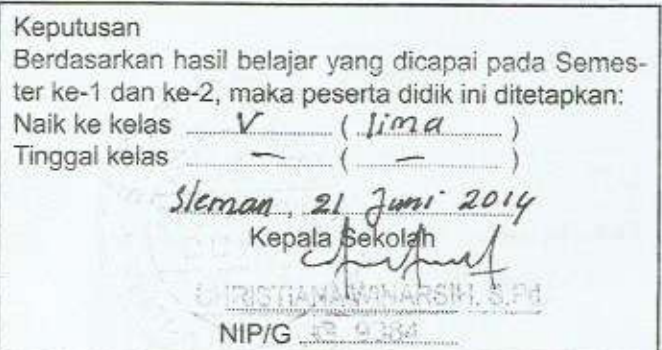 Keputusan
Berdasarkan hasil belajar yang dicapai pada Semes-
ter ke-1 dan ke-2, maka peserta didik ini ditetapkan:
Naik ke kelas V ( lima )
Tinggal kelas — ( — )
Sleman, 21 Juni 2014
Kepala Sekolah
CHRISTIANA WIHARSIH, S.Pd
NIP/G